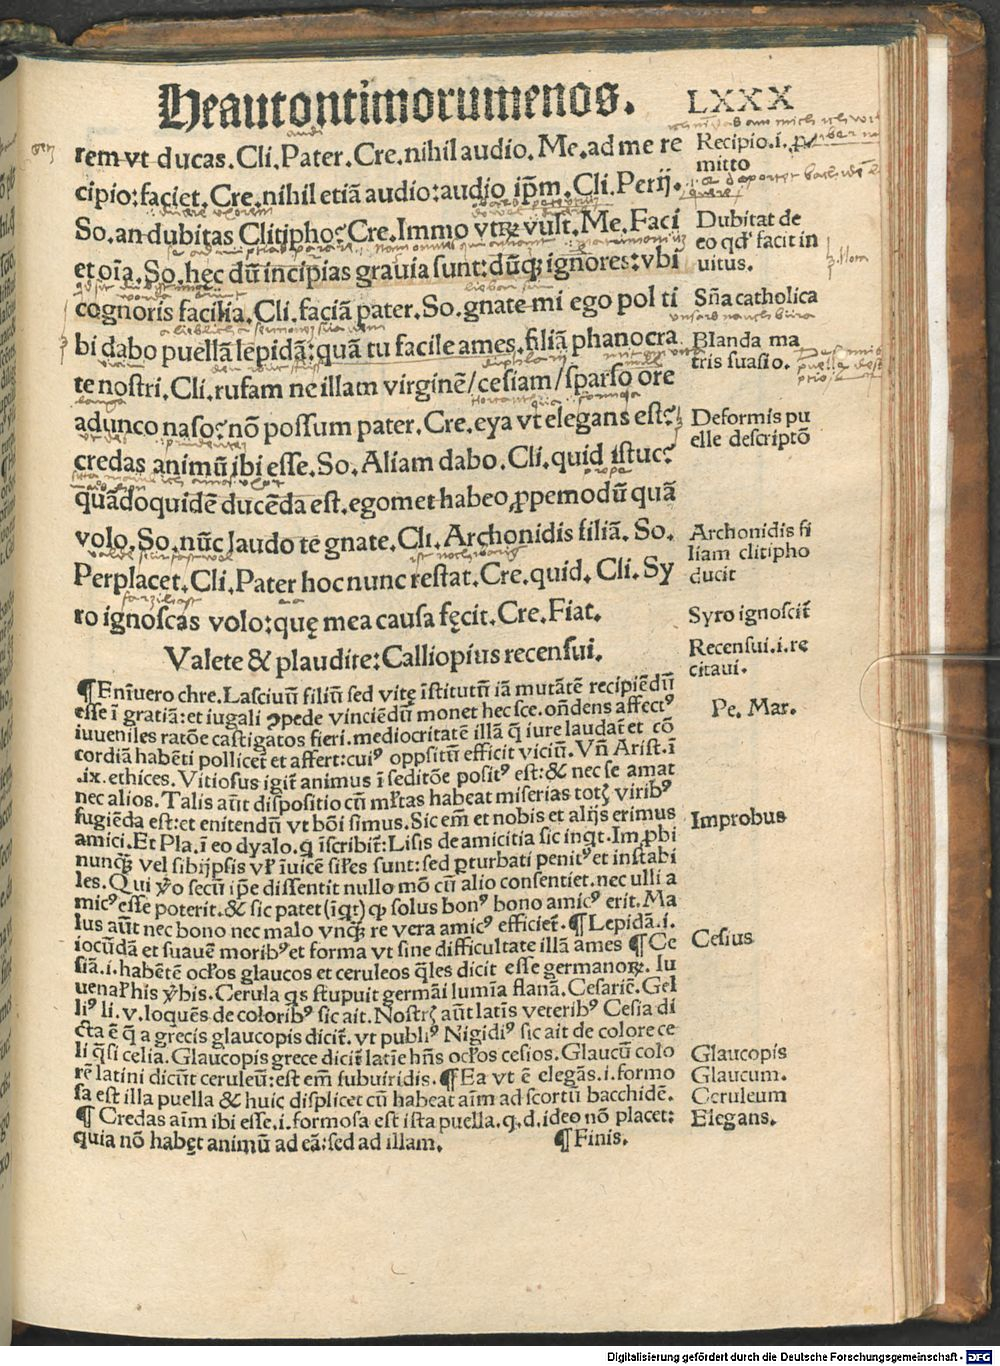 Heautontimorumenos. LXXX
rem vt ducas. Cli. Pater. Cre. nihil audio. Me. ad me re
cipio: faciet. Cre. nihil etiā audio: audio ip̄m. Cli. Perij.
So. an dubitas Clitipho? Cre. Immo vtrꝫ vult. Me. Faci
et oīa. So. hęc dū incipias grauia sunt: dūqꝫ ignores: vbi
cognoris facilia. Cli. faciā pater. So. gnate mi ego pol ti
bi dabo puellā lepidā: quā tu facile ames. filiā phanocra
te nostri. Cli. rufam ne illam virginē/cesiam/sparso ore
adunco naso? nō possum pater. Cre. eya vt elegans est?
credas animū ibi esse. So. Aliam dabo. Cli. quid istuc?
quādoquidē ducēda est. egomet habeo ꝓpemodū quā
volo. So. nūc laudo te gnate. Cli. Archonidis filiā. So.
Perplacet. Cli. Pater hoc nunc restat. Cre. quid. Cli. Sy
ro ignoscas volo: quę mea causa fęcit. Cre. Fiat.
Valete & plaudite: Calliopius recensui.
Recipio .i. ꝓ
mitto
Dubitat de
eo qd' facit in
uitus.
Sña catholica
Blanda ma
tris suasio.
Deformis pu
elle descriptō
Archonidis fi
liam clitipho
ducit
Syro ignoscit̄
Recensui .i. re
citaui.
¶ Enīuero chre. Lasciuū filiū sed vitę īstitutū iā mutātē recipiēdū
esse ī gratiā: et iugali ↄpede vinciēdū monet hec sce. oñdens affectꝰ
iuueniles ratōe castigatos fieri. mediocritatē illā q̄ iure laudat̄ et cō
cordiā habēti pollicet̄ et affert: cuiꝰ oppsitū efficit viciū. Vñ Arist. ī
.ix. ethices. Vitiosus igit̄ animus ī seditōe positꝰ est: & nec se amat
nec alios. Talis aūt dispositio cū ml'tas habeat miserias totꝫ viribꝰ
fugiēda est: et enitendū vt bōi simus. Sic em̄ et nobis et alijs erimus
amici. Et Pla. ī eo dyalo. q̄ īscribit̄: Lisis de amicitia sic inqt. Imꝓbi
nunqꝫ vel sibijpsis vl' īuicē sil'es sunt: sed ꝑturbati penitꝰ et instabi
les. Qui v̓o secū ip̄e dissentit nullo mō cū alio consentiet. nec ulli a
micꝰ esse poterit. & sic patet (īqt) ꝙ solus bonꝰ bono amicꝰ erit. Ma
lus aūt nec bono nec malo vnqꝫ re vera amicꝰ efficiet̄. ¶ Lepidā .i.
iocūdā et suauē moribꝰ et forma vt sine difficultate illā ames ¶ Ce
siā .i. habētē ocl'os glaucos et ceruleos q̄les dicit esse germanoꝝ. Iu
uenal' his v̓bis. Cerula qs stupuit germāi lumīa flauā. Cesariē. Gel
liꝰ li. v. loquēs de coloribꝰ sic ait. Nostrꝫ aūt latīs veteribꝰ Cesia di
cta ē q̄ a grecis glaucopis dicit̄. vt publiꝰ Nigidiꝰ sic ait de colore ce
li q̄si celia. Glaucopis grece dicit̄ latīe hñs ocl'os cesios. Glaucū colo
rē latini dicūt ceruleū: est em̄ subuiridis. ¶ Ea vt ē elegās .i. formo
sa est illa puella & huic displicet cū habeat aīm ad scortū bacchidē.
¶ Credas aīm ibi esse .i. formosa est ista puella. q. d. ideo nō placet:
quia nō habęt animū ad eā: sed ad illam. ¶ Finis.
Pe. Mar.
Improbus
Cesius
Glaucopis
Glaucum.
Ceruleum
Elegans.
Digitalisierung gefördert durch die Deutsche Forschungsgemeinschaft - DFG